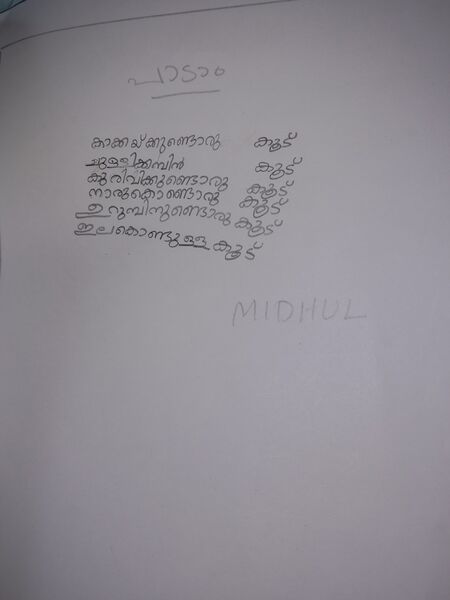 പാടാം
കാക്കയ്ക്കുണ്ടൊരു കൂട്
ചുള്ളിക്കമ്പിൻ കൂട്
കുരിവിക്കുണ്ടൊരു കൂട്
നാരുകൊണ്ടൊരു കൂട്
ഉറുമ്പിനുണ്ടൊരു കൂട്
ഇലകൊണ്ടുള്ള കൂട്
MIDHUL